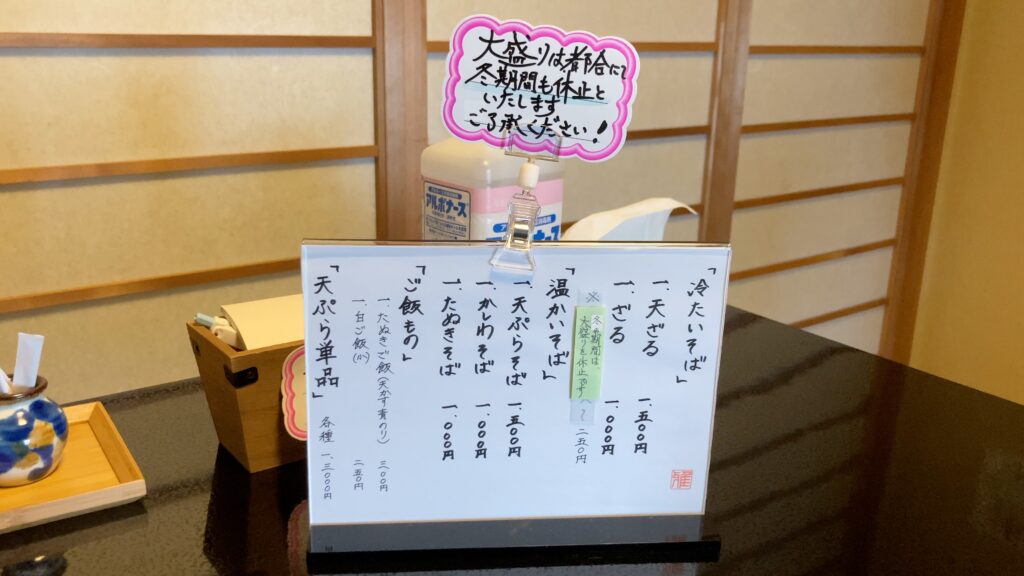 大盛りは都合にて
冬期間も休止と
いたします
ご了承ください!
アルボナース
「冷たいそば」
一、天ざる 一、五〇〇円
一、ざる 一、〇〇〇円
※冬期間は、
大盛りを休止です
〜二五〇円
「温かいそば」
一、天ぷらそば 一、五〇〇円
一、かしわそば 一、〇〇〇円
一、たぬきそば 一、〇〇〇円
「ご飯もの」
一、たぬきご飯(天かす青のり) 三〇〇円
一、白ご飯(小) 二五〇円
「天ぷら単品」 各種 一、三〇〇〇円